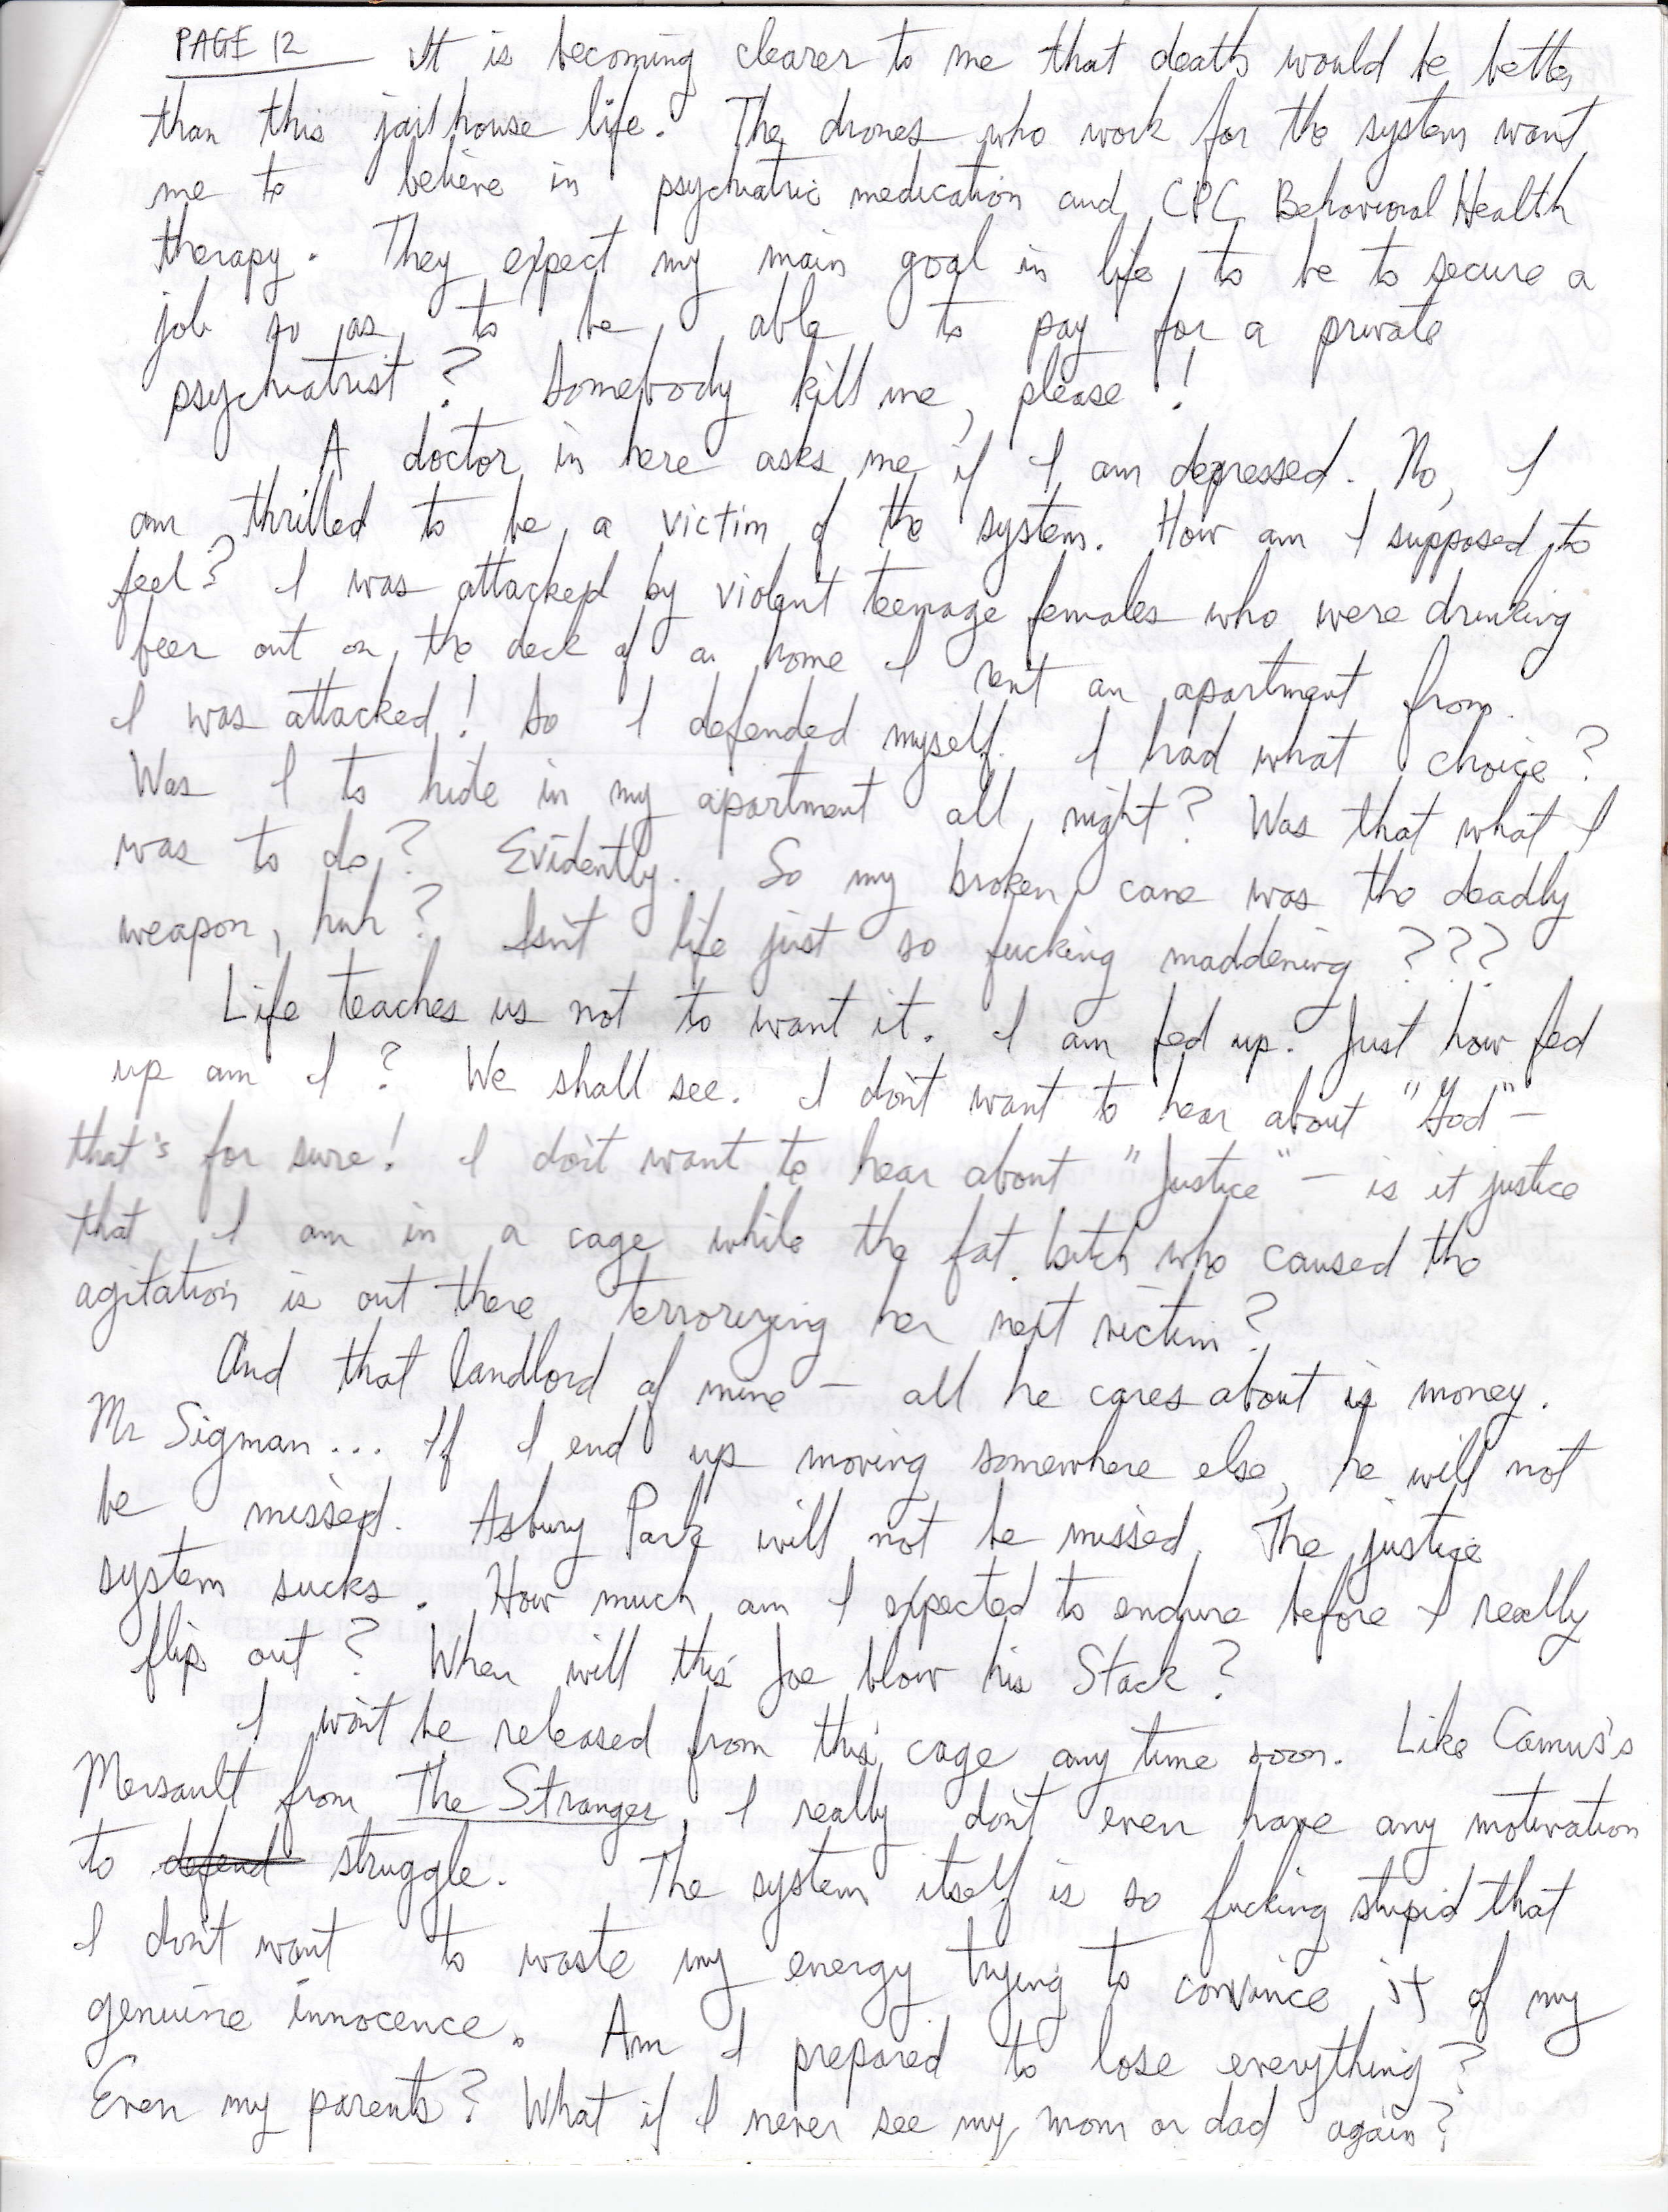 PAGE 12 It is becoming clearer to me that death would be better
than this jailhouse life. The drones who work for the system want
me to believe in psychiatric medication and CPC Behavioral Health
therapy. They expect my main goal in life to be to secure a
job so as to be able to pay for a private
psychiatrist? Somebody kill me, please!
A doctor in here asks me if I am depressed. No, I
am thrilled to be a victim of the system. How am I supposed to
feel? I was attacked by violent teenage females who were drinking
beer out on the deck of a home I rent an apartment from.
I was attacked! So I defended myself. I had what choice?
Was I to hide in my apartment all night? Was that what I
was to do? Evidently. So my broken cane was the deadly
weapon, huh? Isn't life just so fucking maddening???
Life teaches us not to want it. I am fed up. Just how fed
up am I? We shall see. I don't want to hear about "God" –
that's for sure! I don't want to hear about "Justice" – is it justice
that I am in a cage while the fat bitch who caused the
agitation is out there terrorizing her next victim?
And that landlord of mine – all he cares about is money.
Mr Sigman... If I end up moving somewhere else, he will not
be missed. Asbury Park will not be missed. The justice
system sucks. How much am I expected to endure before I really
flip out? When will this Joe blow his Stack?
I won't be released from this cage any time soon. Like Camus's
Mersault from The Stranger, I really don't even have any motivation
to defend struggle. The system itself is so fucking stupid that
I don't want to waste my energy trying to convince it of my
genuine innocence. Am I prepared to lose everything?
Even my parents? What if I never see my mom or dad again?